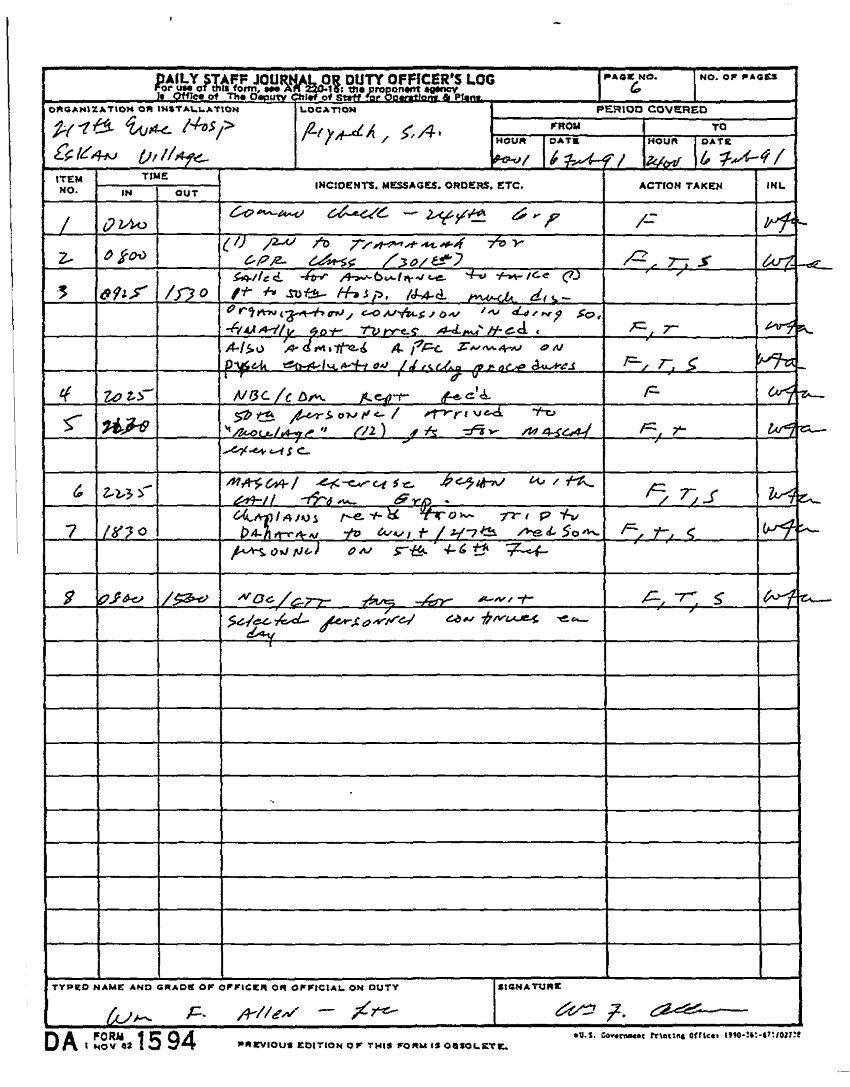 DAILY STAFF JOURNAL OR DUTY OFFICER'S LOG
For use of this form, see AR 220-15; the proponent agency
is Office of The Deputy Chief of Staff for Operations & Plans.
PAGE NO.
6
NO. OF PAGES
ORGANIZATION OR INSTALLATION
217th Evac Hosp
Eskan Village
LOCATION
Riyadh, S.A.
PERIOD COVERED
FROM
TO
HOUR
DATE
HOUR
DATE
0001
6 Feb 91
2400
6 Feb 91
ITEM NO.
TIME
IN
OUT
INCIDENTS, MESSAGES, ORDERS, ETC.
ACTION TAKEN
INL
1 Commo check - 244th Grp F wfa
2 0800 (1) RN to for
CPR Class (301st) F, T, S wfa
3 0925 1530 for Ambulance to (1)
pt to 50th Hosp. Had much dis-
organization, confusion in doing so.
finally got Torres admitted. F, T wfa
Also admitted A PFC Inman on
pysch evaluation / dischg procedures F, T, S wfa
4 2025 NBC/CDM Rept Rec'd F wfa
5 50th personnel arrived to
"moulage" (12) pts for MASCAL F, T wfa
exercise
6 2235 MASCAL exercise began with
call from Grp. F, T, S wfa
7 1830 Chaplains ret'd from trip to
Dahran to unit / 47th medsom F, T, S wfa
personnel on 5th + 6th Feb
8 0800 1530 NBC/CTT tng for unit F, T, S wfa
selected personnel continues ea
day
TYPED NAME AND GRADE OF OFFICER OR OFFICIAL ON DUTY
Wm F. Allen - LTC
SIGNATURE
Wm F. Allen
DA FORM 1594
1 NOV 62
PREVIOUS EDITION OF THIS FORM IS OBSOLETE.
U.S. Government Printing Office: